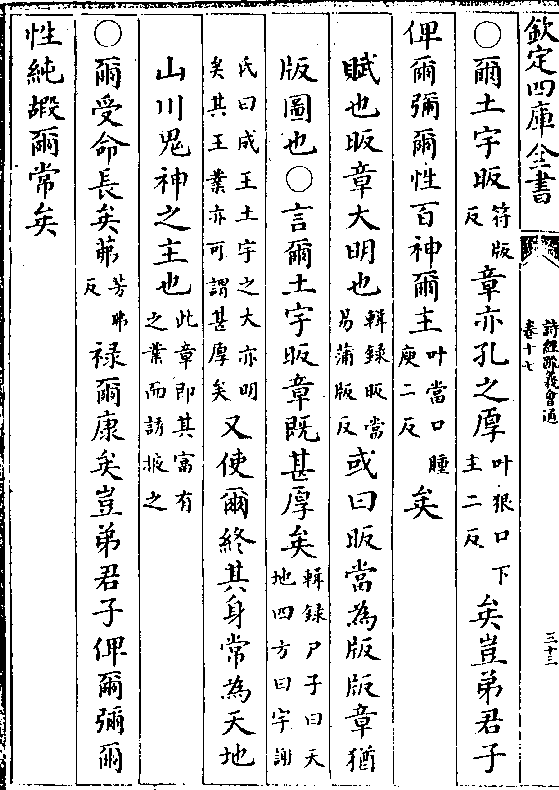 欽定四庫全書
詩經疏義會通
卷十七
三十三
○爾土宇昄符版反章亦孔之厚叶狠口下主二反矣豈弟君子
俾爾彌爾性百神爾主叶當口腫庾二反矣
賦也昄章大明也輯録昄當易蒲版反或曰昄當為版版章猶
版圖也○言爾土宇昄章既甚厚矣輯録尸子曰天地四方曰宇謝
氏曰成王土宇之大亦明矣其王業亦可謂甚厚矣又使爾終其身常為天地
山川鬼神之主也此章即其富有之業而誘掖之
○爾受命長矣茀芳弗反禄爾康矣豈弟君子俾爾彌爾
性純嘏爾常矣